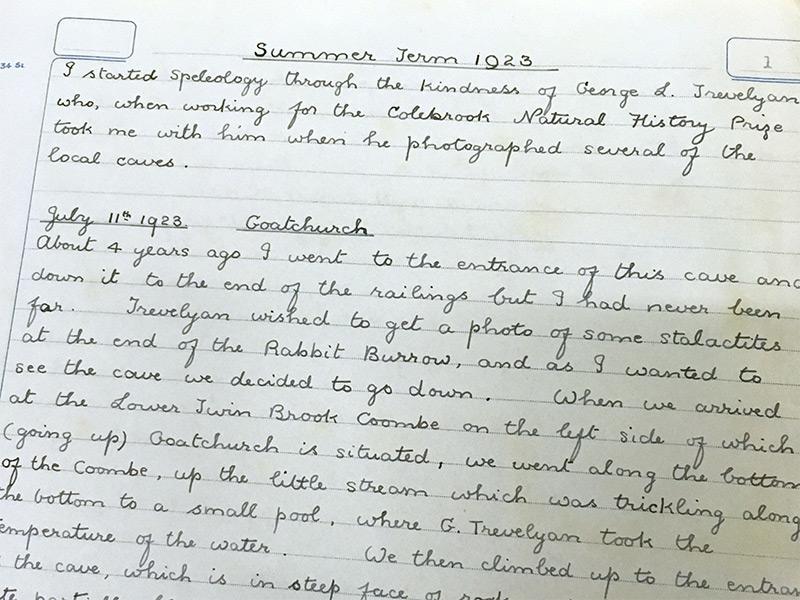 Summer Term 1923
1
34 St
I started speleology through the kindness of George L. Trevelyan
who, when working for the Colebrook Natural History Prize
took me with him when he photographed several of the
local caves.
July 11th 1923. Goatchurch
About 4 years ago I went to the entrance of this cave and
down it to the end of the railings but I had never been
far. Trevelyan wished to get a photo of some stalactites
at the end of the Rabbit Burrow, and as I wanted to
see the cave we decided to go down. When we arrived
at the Lower Twin Brook Coombe on the left side of which
(going up) Goatchurch is situated, we went along the bottom
of the Coombe, up the little stream which was trickling along
the bottom to a small pool, where G. Trevelyan took the
temperature of the water. We then climbed up to the entran
the cave, which is in steep face of